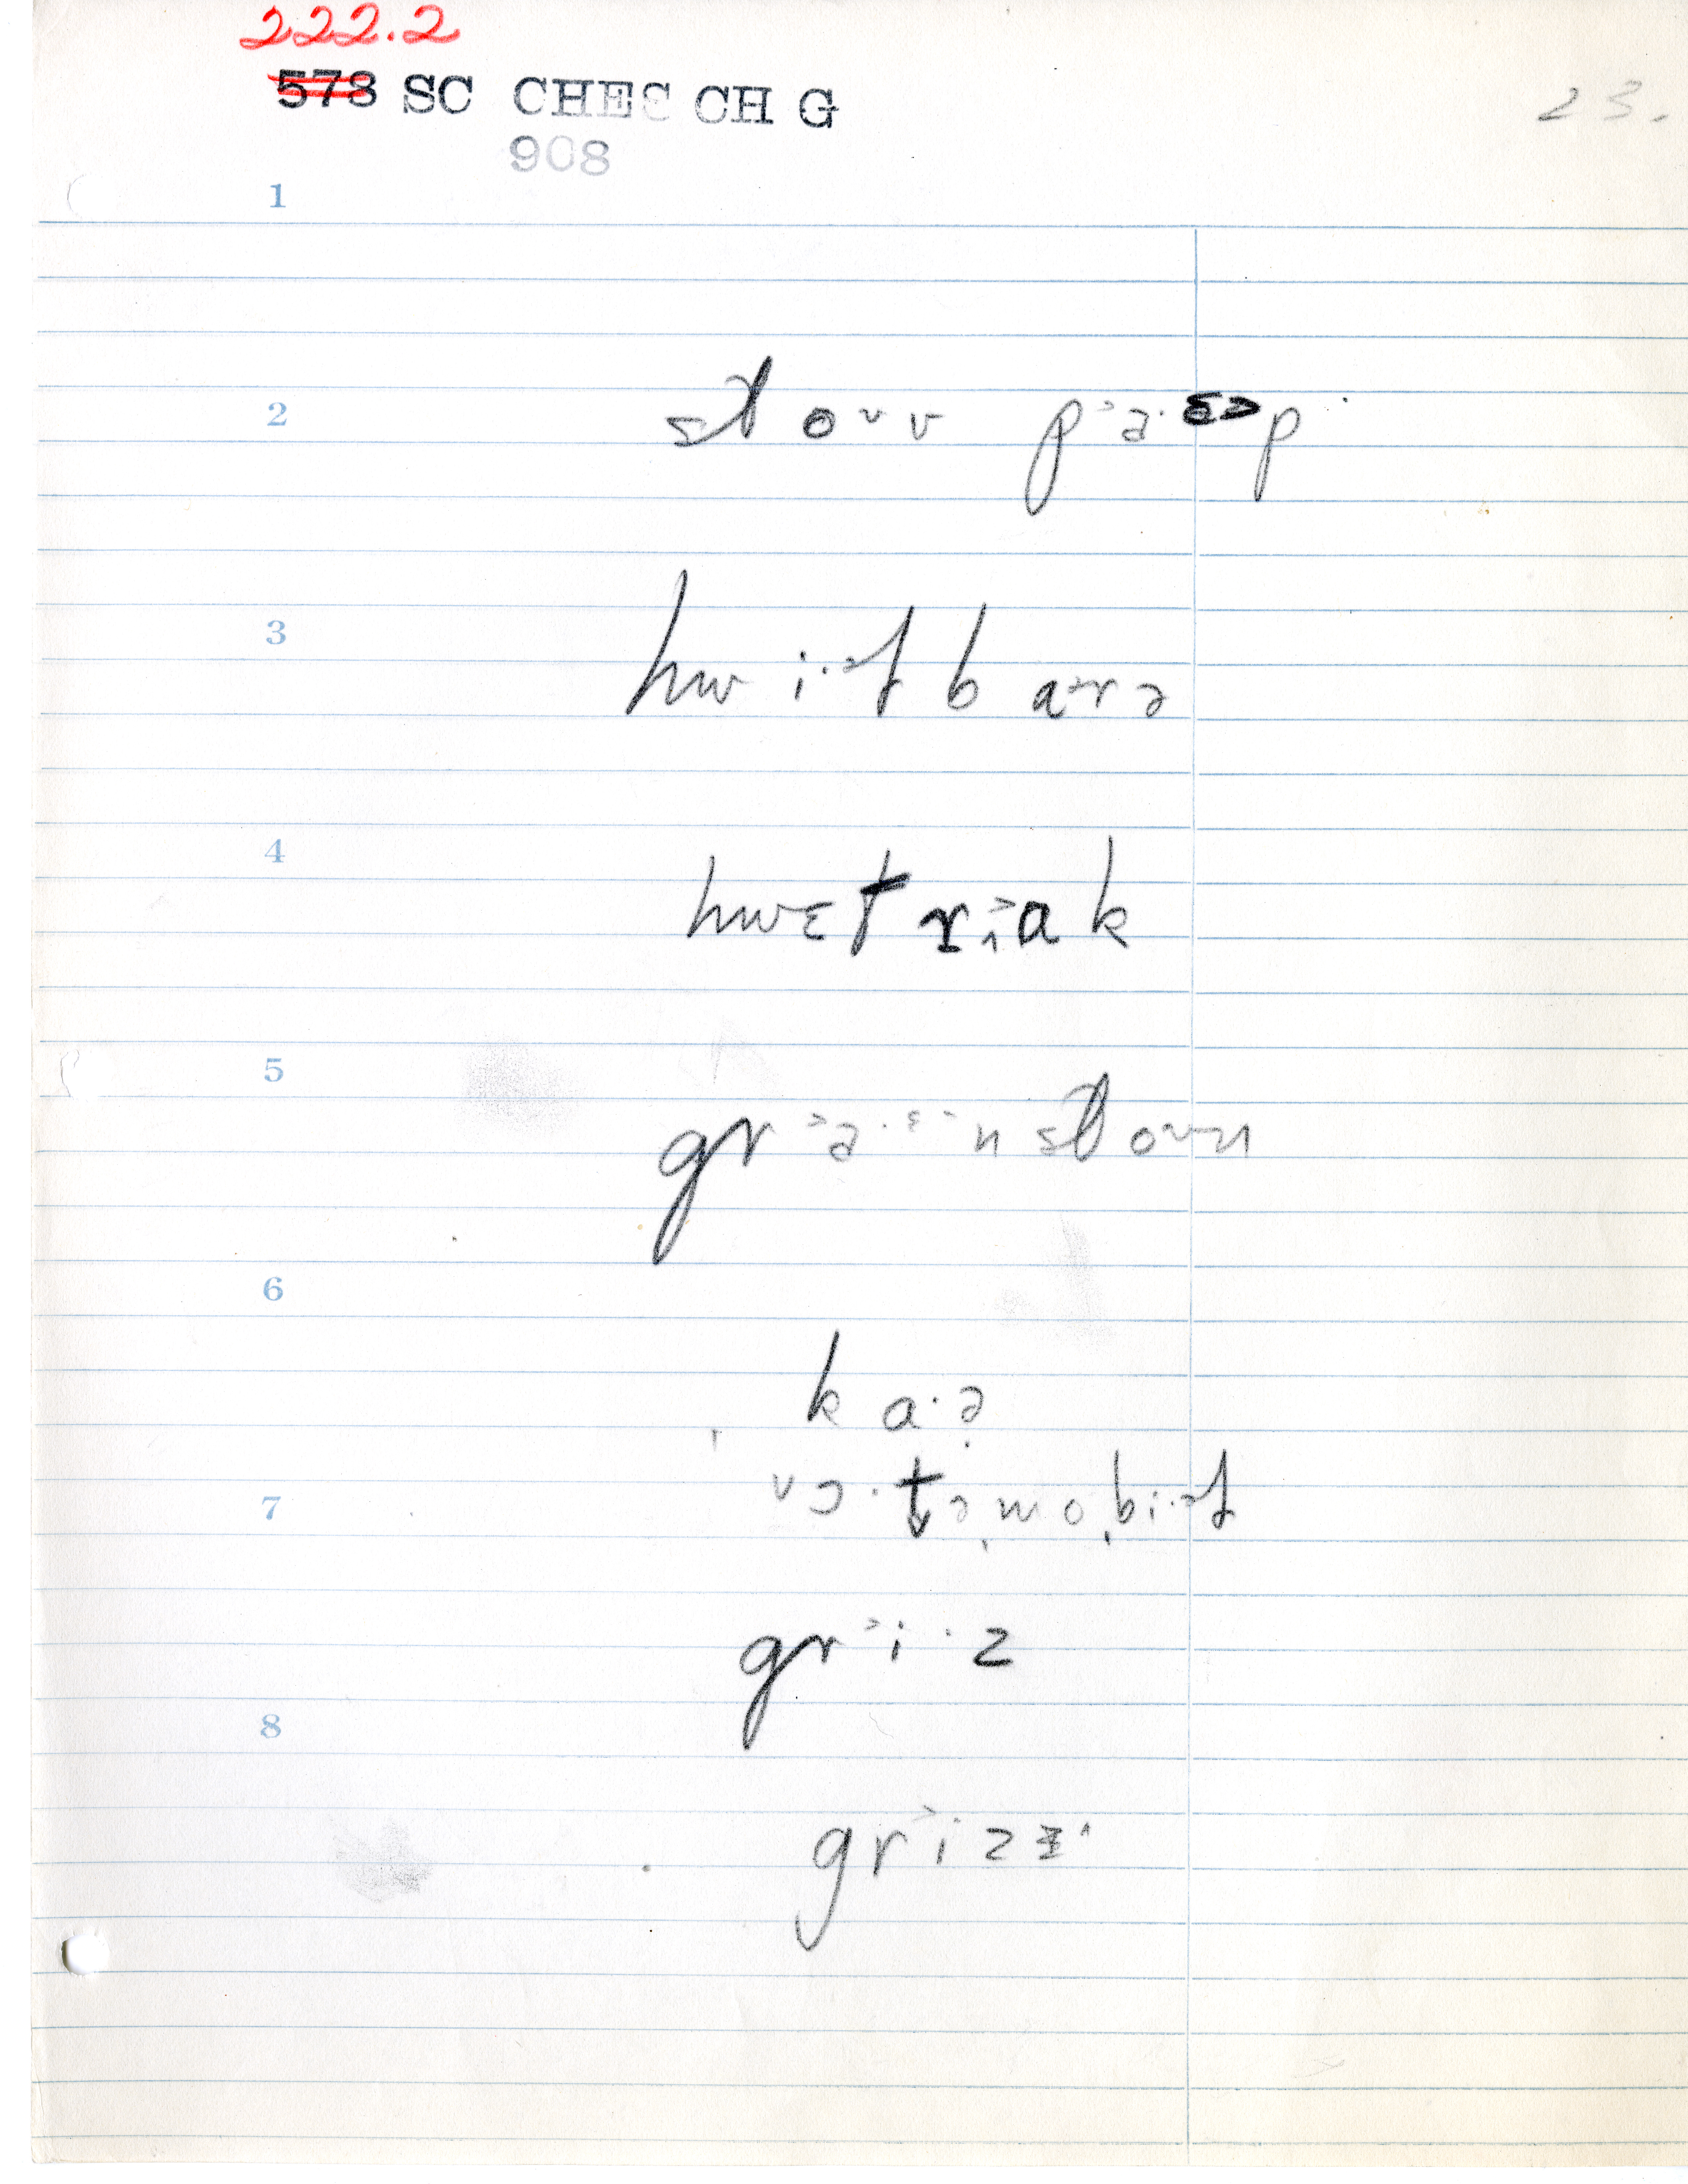 222.2
573 SC CHES CH G
23.
908
1
2 stovv p˃ə·ɛ˃p
3 hwi·əl barə
4 hwɛt r˃iak
5 gr˃ə·ɛ˃nstovn
6
ka·ə
7 vɔ·təmobiəl
gr˃i·z
8
gr˃izɪ